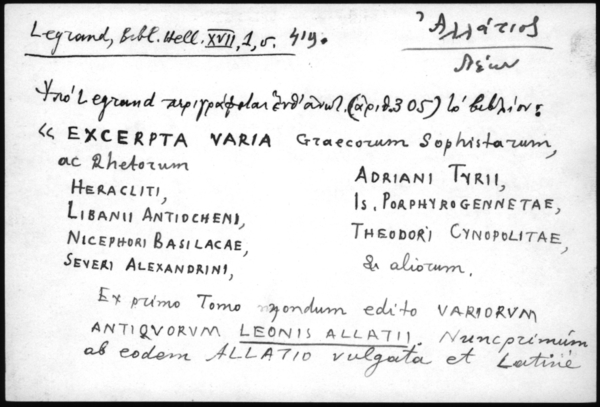 Legrand, Bibl. Hell. XVII, 1, σ. 419.
Ἀλλάτιος
Λέων
Ὑπὸ Legrand περιγράφεται ἔνθ' ἀνωτ. (ἀριθ. 305) τὸ βιβλίον:
« EXCERPTA VARIA Graecorum Sophistarum,
ac Rhetorum
HERACLITI,
LIBANII ANTIOCHENI,
NICEPHORI BASILACAE,
SEVERI ALEXANDRINI,
ADRIANI TYRII,
Is. PORPHYROGENNETAE,
THEODORI CYNOPOLITAE,
& aliorum.
Ex primo Tomo nondum edito VARIORVM
ANTIQVORVM LEONIS ALLATII. Nunc primùm
ab eodem ALLATIO vulgata et Latinè